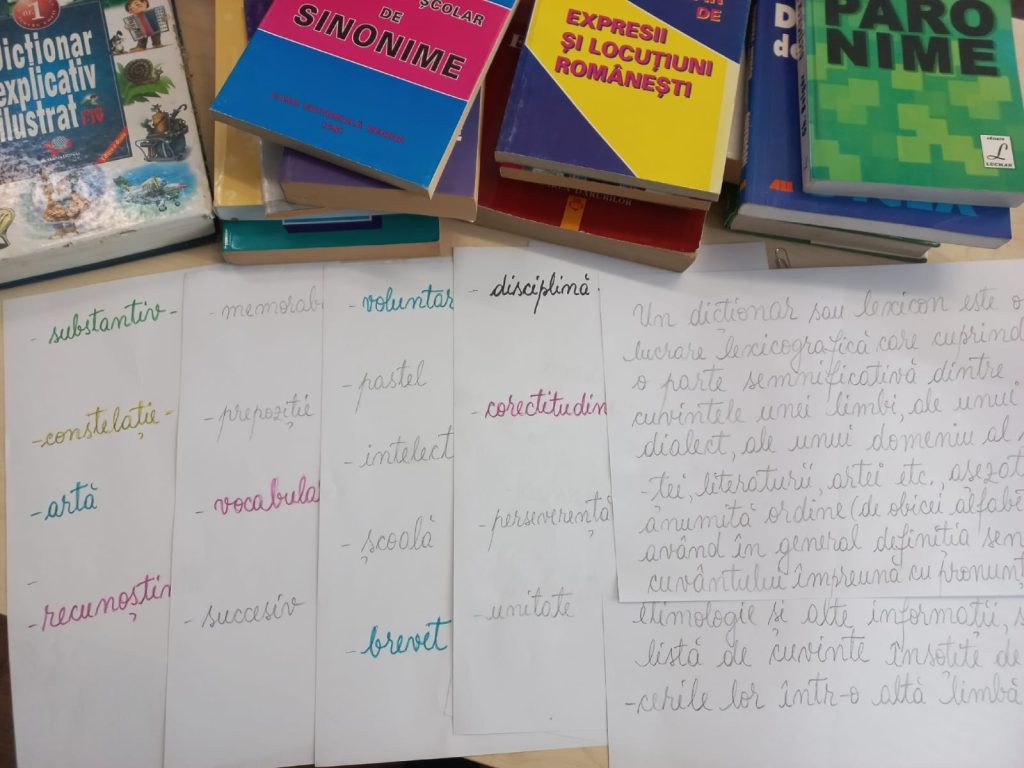 Nº1
Dicționar
explicativ
ilustrat
ȘCOLAR
DE
SINONIME
DE
EXPRESII
ȘI LOCUȚIUNI
ROMÂNEȘTI
PARO
NIME
editura
L
LUCMAN
ALL
- substantiv -
- constelație -
- artă
-
- recunoștin
- memorab
- prepoziție
- vocabula
- succesiv
- voluntar
- pastel
- intelect
- școală
- brevet
- disciplină -
- corectitudin
- perseverență
- unitate
Un dicționar sau lexicon este o
lucrare lexicografică care cuprind
o parte semnificativă dintre
cuvintele unei limbi, ale unui
dialect, ale unui domeniu al ș
-tei, literaturii, artei etc., așezat
anumită ordine (de obicei alfabe
având în general definiția sen
cuvântului împreună cu pronunț
etimologie și alte informații, s
listă de cuvinte însoțite de
-cerile lor într-o altă limbă